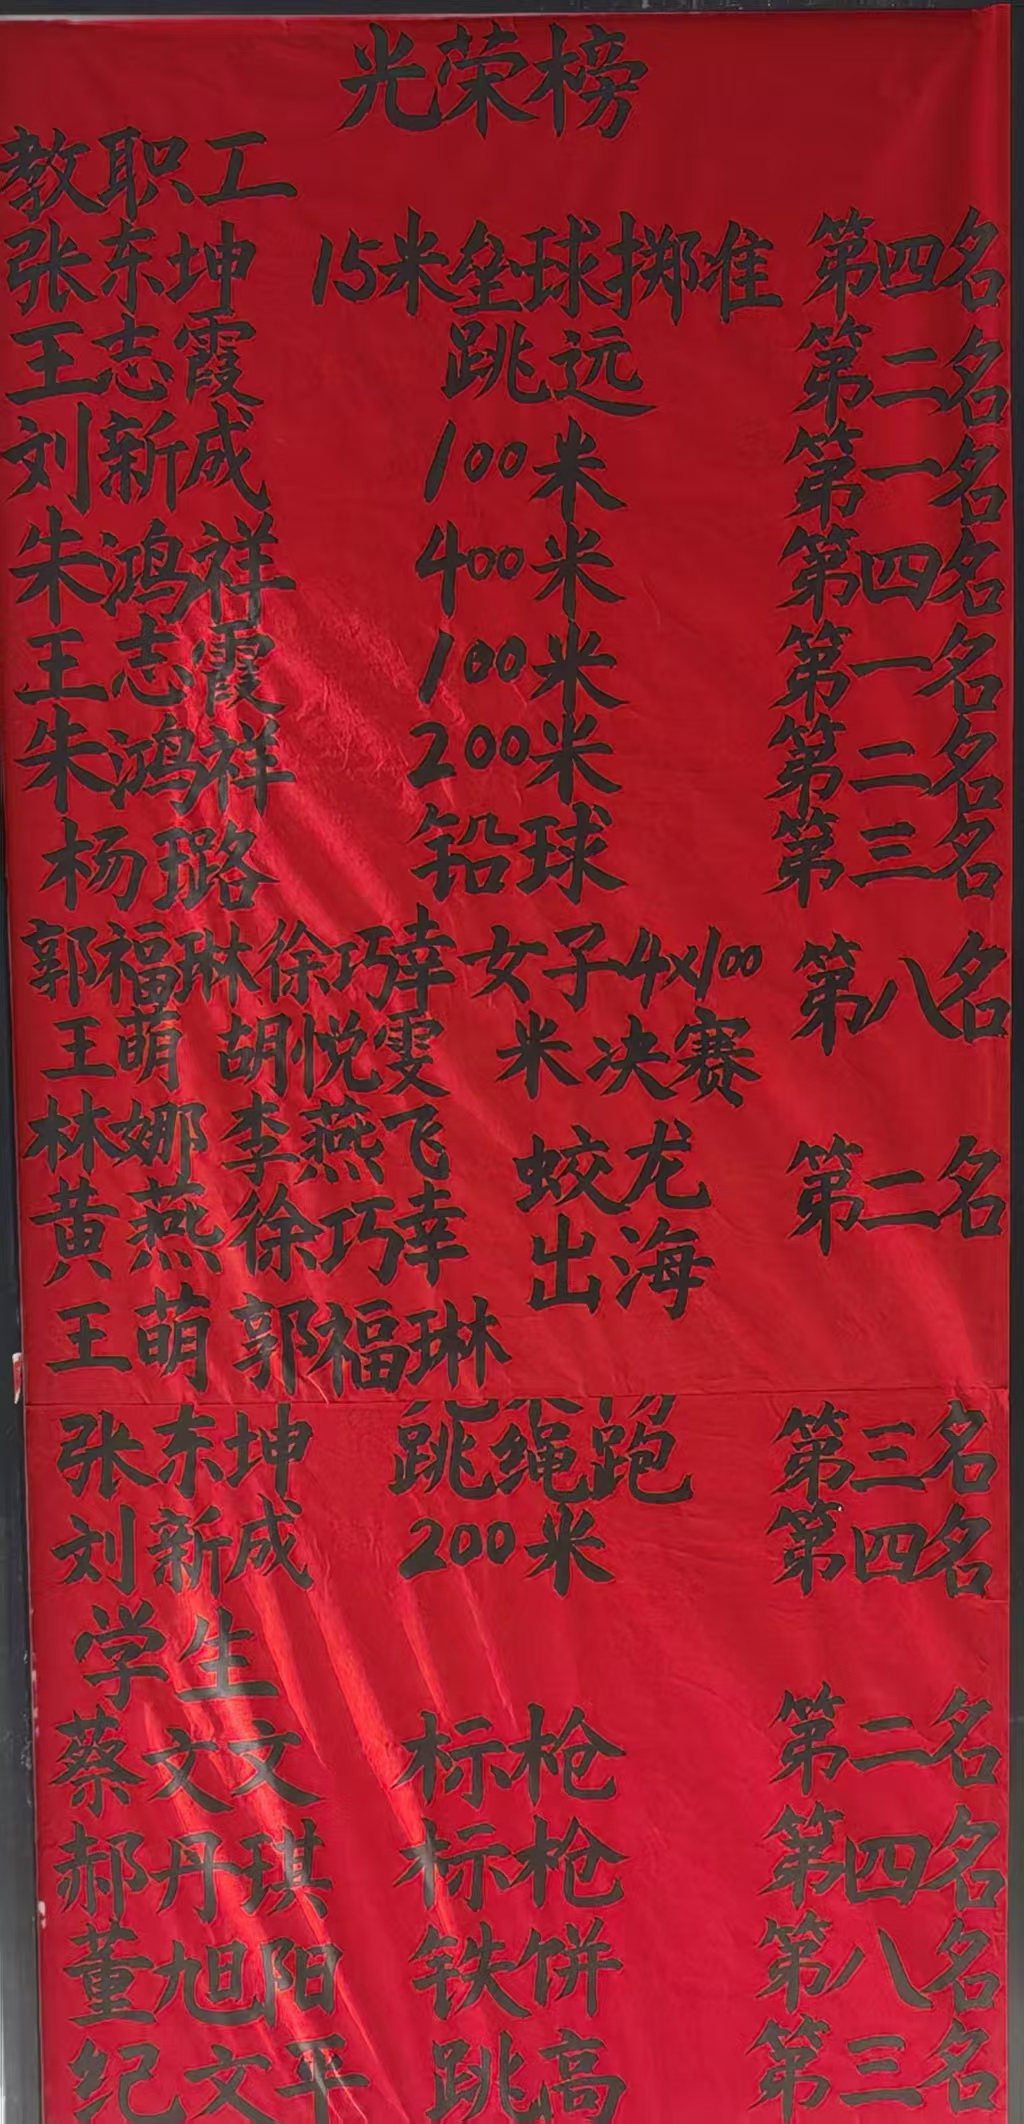 光荣榜
教职工
张东坤 15米垒球掷准 第四名
王志霞 跳远 第二名
刘新成 100米 第一名
朱鸿祥 400米 第四名
王志霞 100米 第一名
朱鸿祥 200米 第二名
杨璐 铅球 第三名
郭福琳 徐巧幸 女子4x100 第八名
王萌 胡悦雯 米决赛
林娜 李燕飞 蛟龙 第二名
黄燕 徐巧幸 出海
王萌 郭福琳
张东坤 跳绳跑 第三名
刘新成 200米 第四名
学生
蔡文文 标枪 第二名
郝丹琪 标枪 第四名
董旭阳 铁饼 第八名
纪文平 跳高 第三名